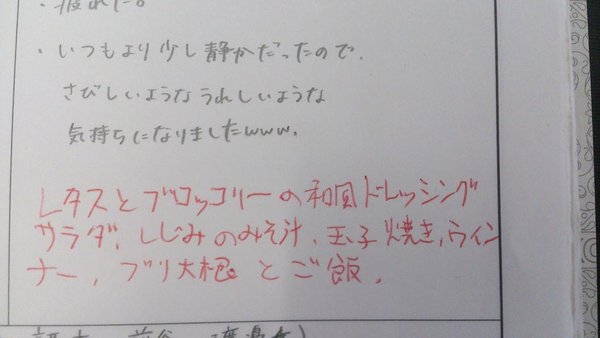 ・疲れた。
・いつもより少し静かだったので、
さびしいようなうれしいような
気持ちになりましたwww.
レタスとブロッコリーの和風ドレッシング
サラダ、しじみのみそ汁、玉子焼き、ウイン
ナー、ブリ大根とご飯。